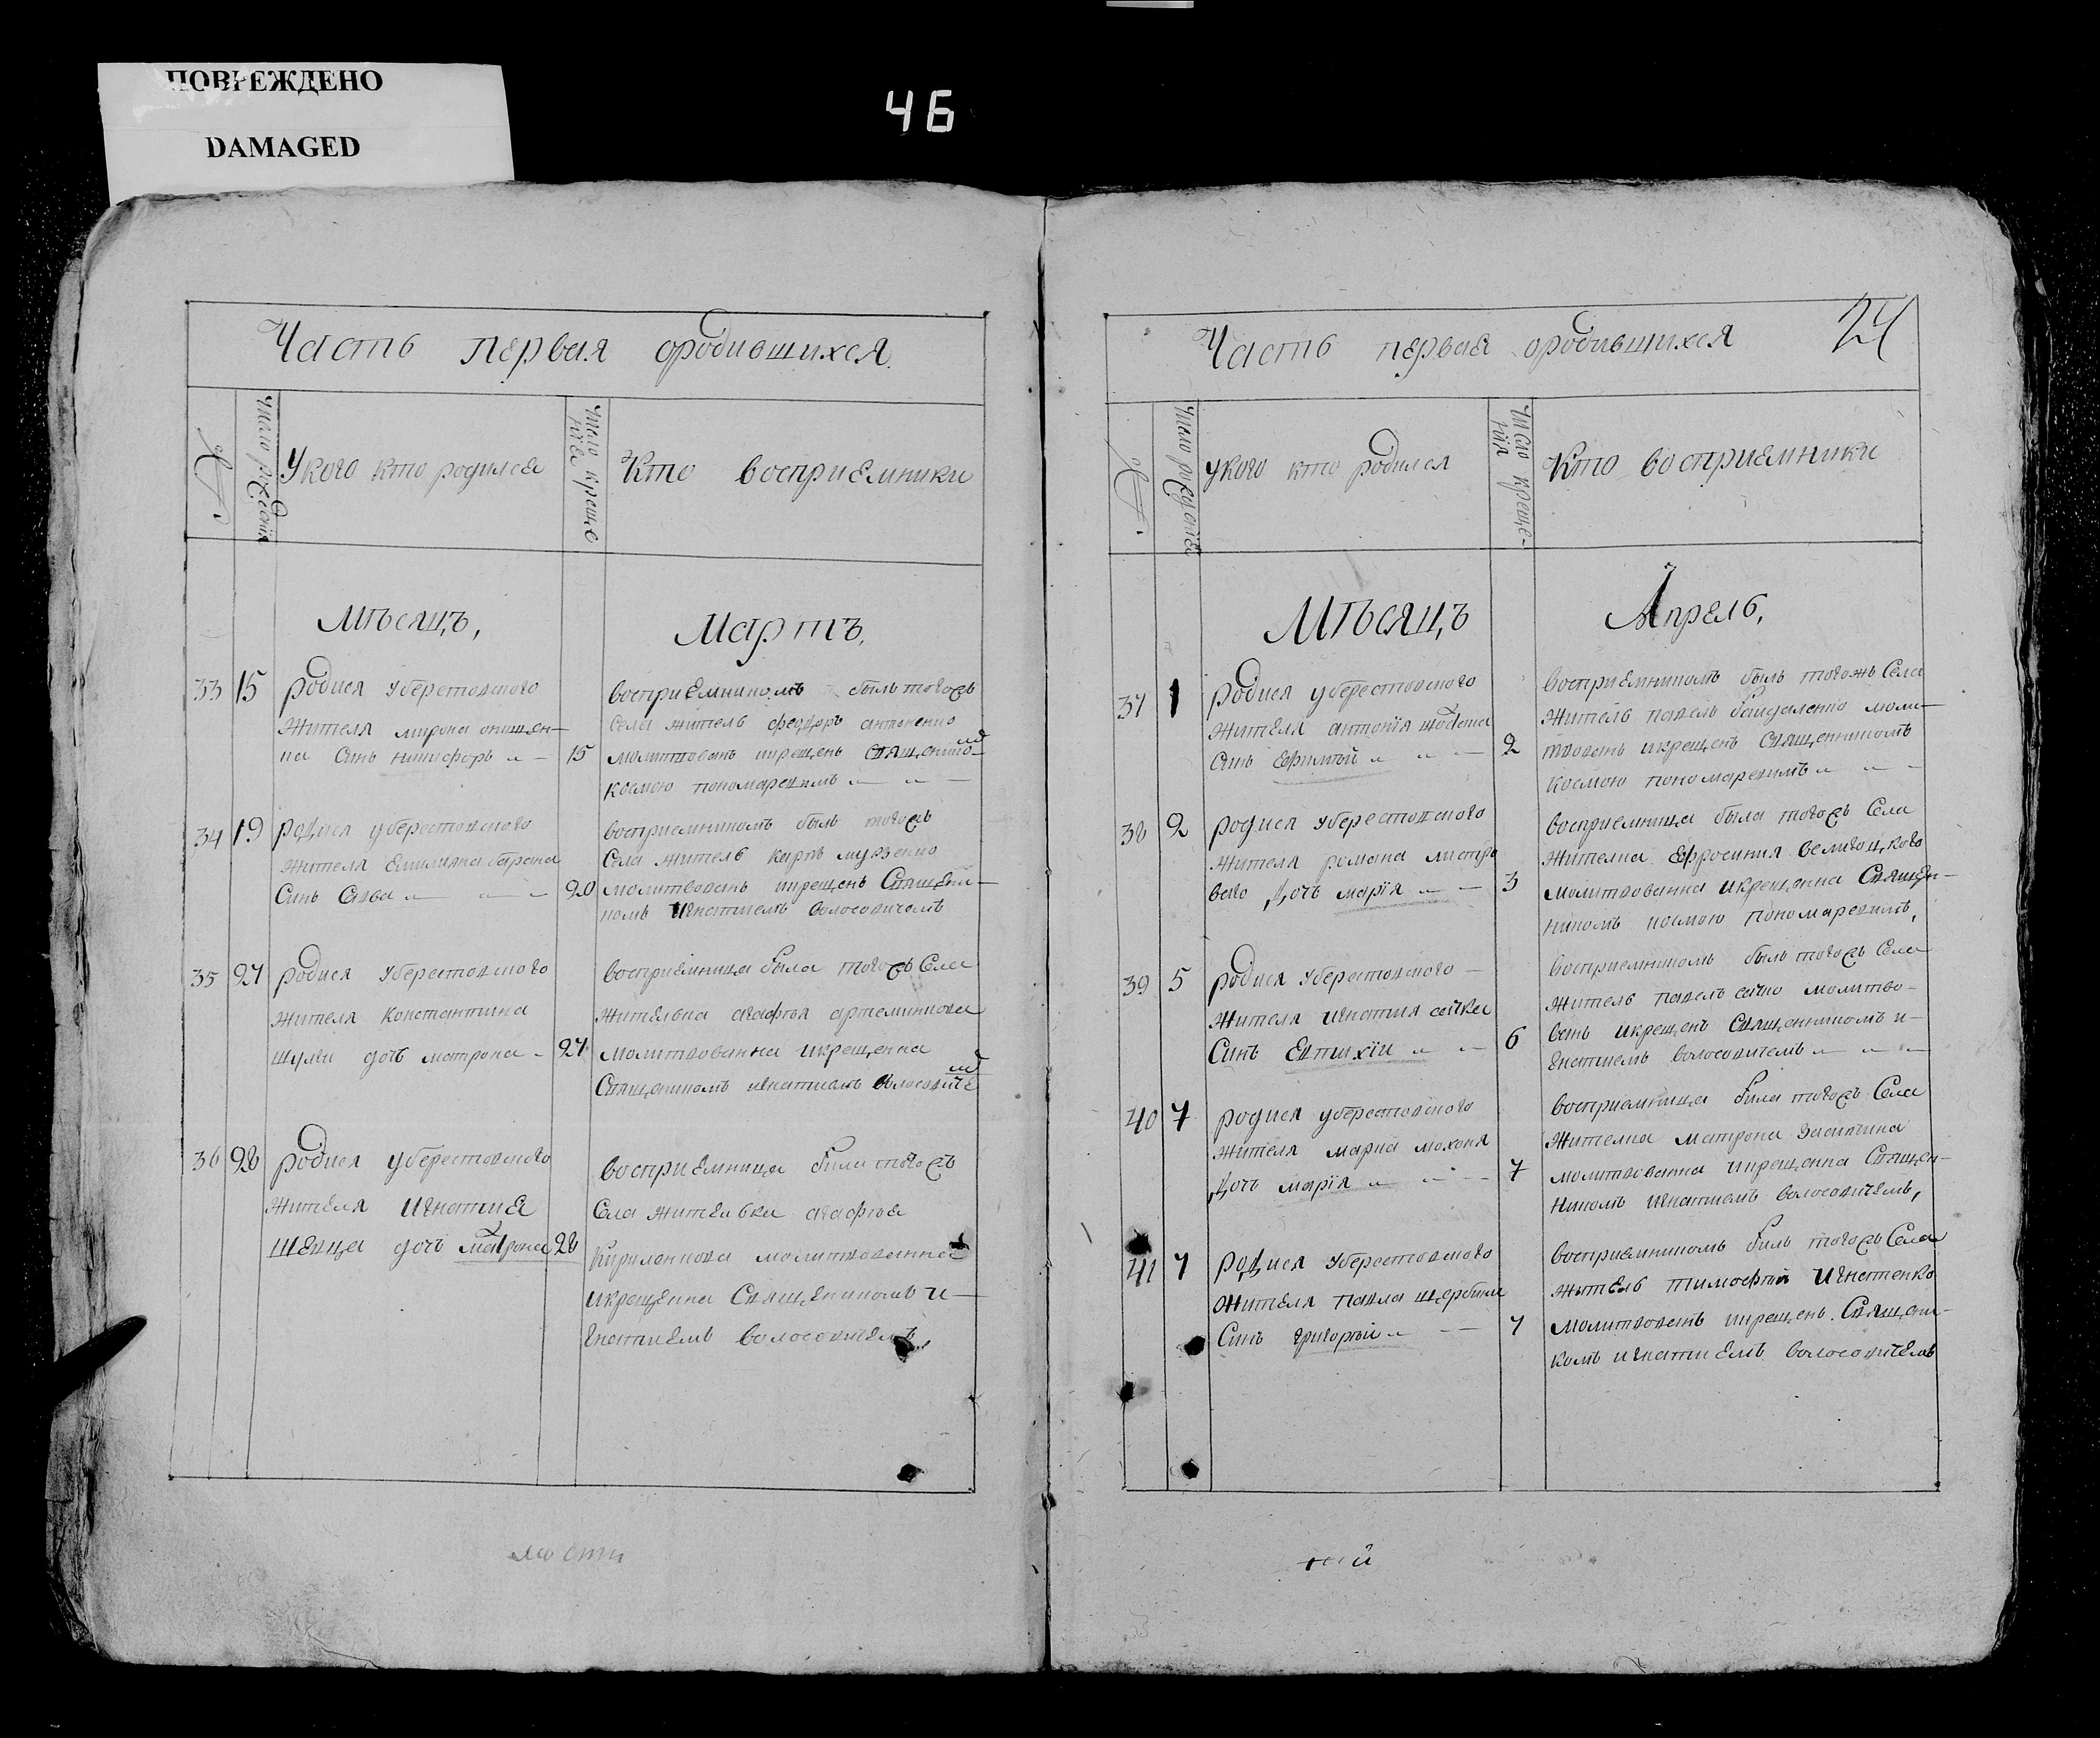 ПОВРЕЖДЕНО
DAMAGED
46
Часть первая ородившихся
№.
Число рождения
Укого кто родился
Число креще
нія
Кто восприемники
Мѣсяцъ,
Мартъ,
33 15 родися уберестовского
жителя мирона онищен-
ка Синъ никифоръ
15
восприемникомъ былъ тогожъ
села житель феодоръ антоненко
молитвованъ икрещенъ священико
мъ
космою пономаревимъ
34 19 родися уберестовского
жителя Емилиана барана
Синъ Сава
20
восприемникомъ былъ тогожъ
Села житель карпъ музенко
молитвованъ икрещенъ Священи-
комъ Игнатиемъ волосовичемъ
35 27 родися уберестовского
жителя константина
шуляки дочь матрона
27
восприемница была тогожъ Села
жителька агафия артеминкова
молитвованна икрещенна
Священикомъ игнатиемъ волосовиче
мъ
36 28 родися уберестовского
жителя Игнатия
Шевца дочь матрона
28
восприемница била тогожъ
Села жителька агафия
Кириленкова молитвованна
икрещенна Священикомъ и-
гнатиемъ волосовичемъ,
24
Часть первая ородившихся
№.
Число рождения
укого кто родился
Число креще-
нія
Кто восприемники
Мѣсяцъ
Апрель,
37 1 родися уберестовского
жителя антонія
Синъ Ефимъй
2
восприемникомъ былъ тогожъ Села
житель павелъ моли-
твованъ икрещенъ Священникомъ
космою пономаревимъ
38 2 родися уберестовского
жителя романа
дочь марія
3
восприемница была тогожъ Села
жителка Ефросиния великоцкого
молитвованна икрещенна Священ-
никомъ космою пономаревимъ,
39 5 родися уберестовского
жителя игнатия сачка
Синъ Евтихїи
6
восприемникомъ былъ тогожъ Села
житель павелъ сачко молитво-
ванъ икрещенъ Священникомъ и-
гнатиемъ волосовичемъ
40 7 родися уберестовского
жителя марка махоня
дочь марія
7
восприемница била тогожъ Села
жителка матрона
молитвованна икрещенна Священ-
никомъ игнатиемъ волосовичемъ,
41 7 родися уберестовского
жителя павла щербини
Синъ григорий
7
восприемникомъ билъ тогожъ Села
житель тимофей Игнатенко
молитвованъ икрещенъ Священи-
комъ игнатиемъ волосовичемъ